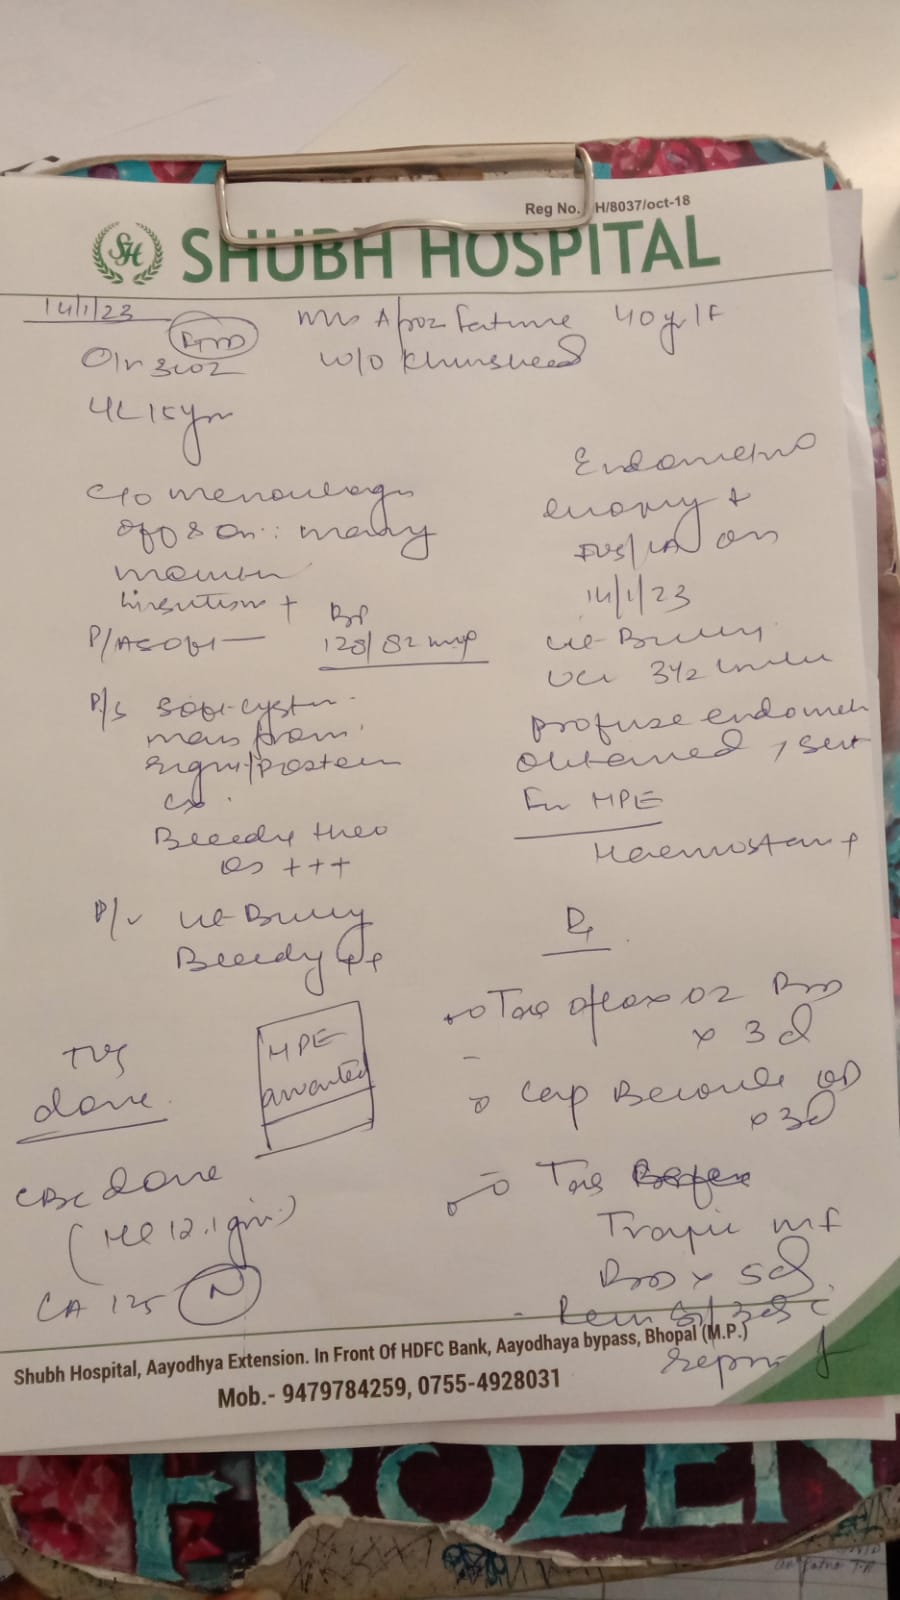 Reg No. H/8037/oct-18
SH
SHUBH HOSPITAL
14/1/23
Mrs Afroz Fatime 40yr/F
W/O Khursheed
O/n 3002
4L 15yrs
C/o menorrhagia
off & on :: many
months
hirsutism +
P/A soft
BP
128/82 mmHg
P/S soft cystic
mass from
right/posterior
cx.
Bleeding thro
os +++
P/V Ut-Bulky
Bleeding ++
TVS
done
HPE
awaited
CBC done
(Hb 12.1gm)
CA 125 N
Endometrial
+
EUS/LA on
14/1/23
Ut-Bulky
UCL 3 1/2 inches
profuse endomet
obtained, sent
For HPE
Haemostasis +
Rx
Tab oflox OZ BD
x 3d
Cap Becosule OD
x 3d
Tab
Trapic MF
BD x 5d
Rem 3d c
report
Shubh Hospital, Aayodhya Extension. In Front Of HDFC Bank, Aayodhaya bypass, Bhopal (M.P.)
Mob.- 9479784259, 0755-4928031
FROZEN